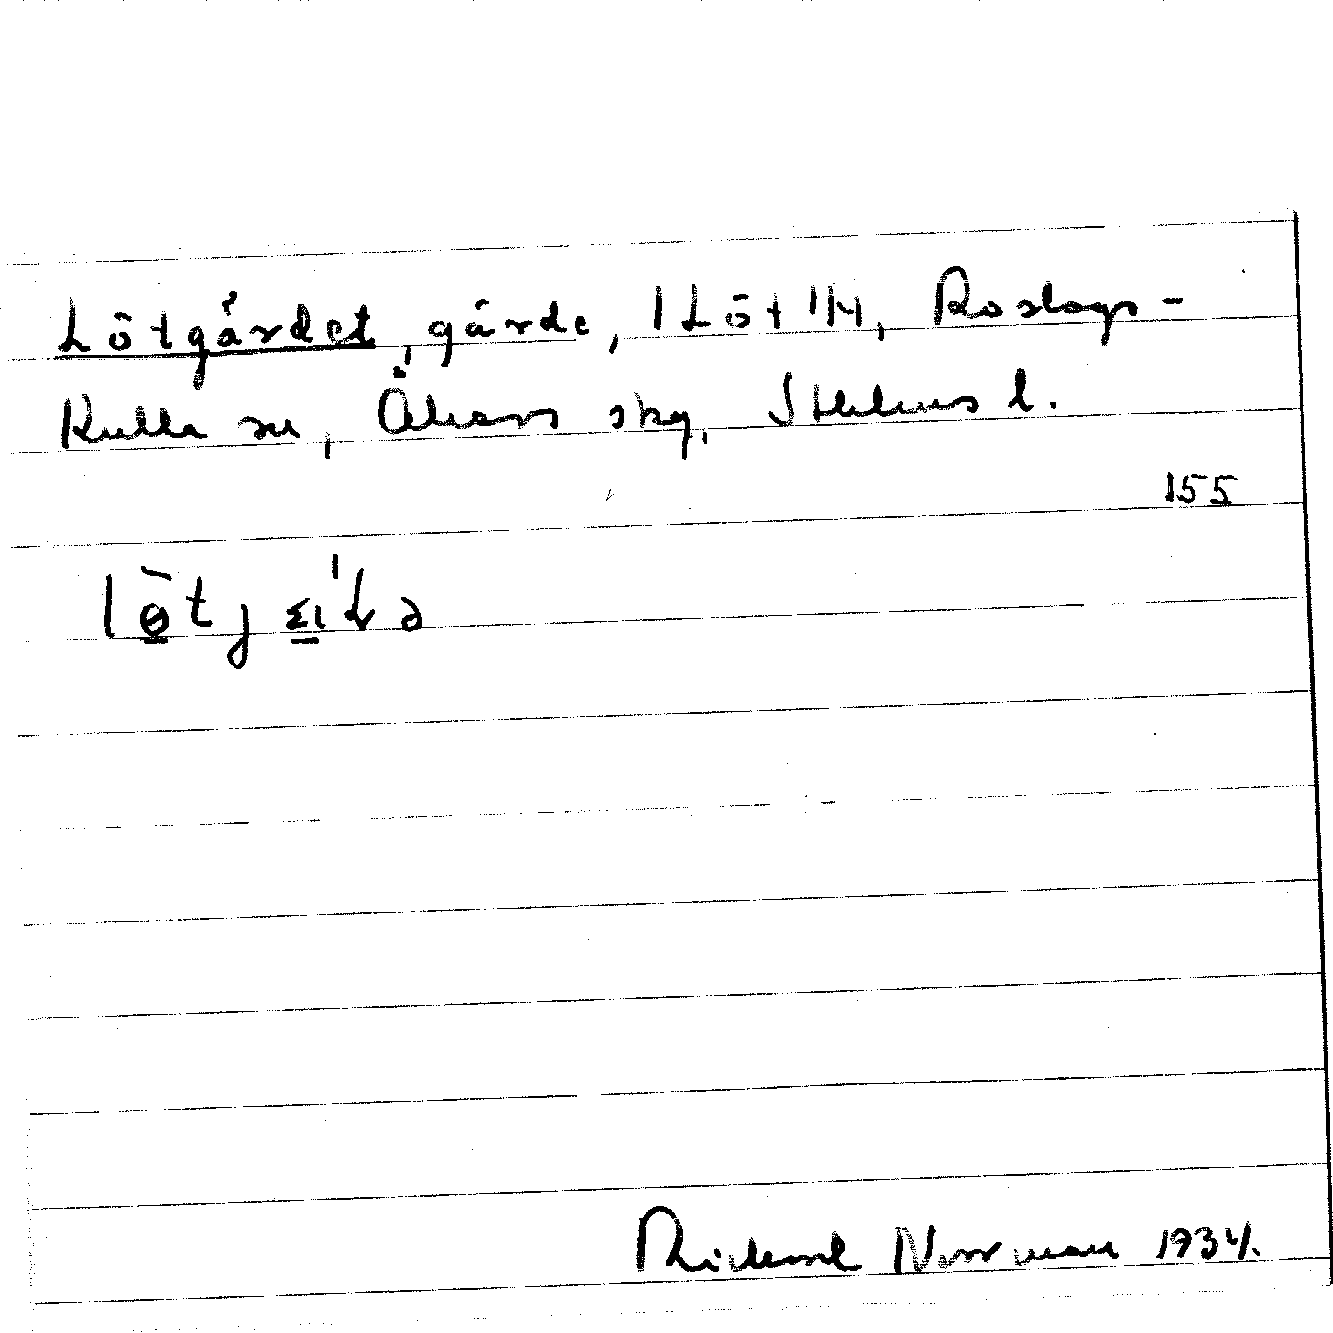 Lötgärdet, gärde, 1 Löt 1/4, Roslags-
Kulla sn, Åkers skg, Sthlms l.
155
Rickard Norrman 1934.